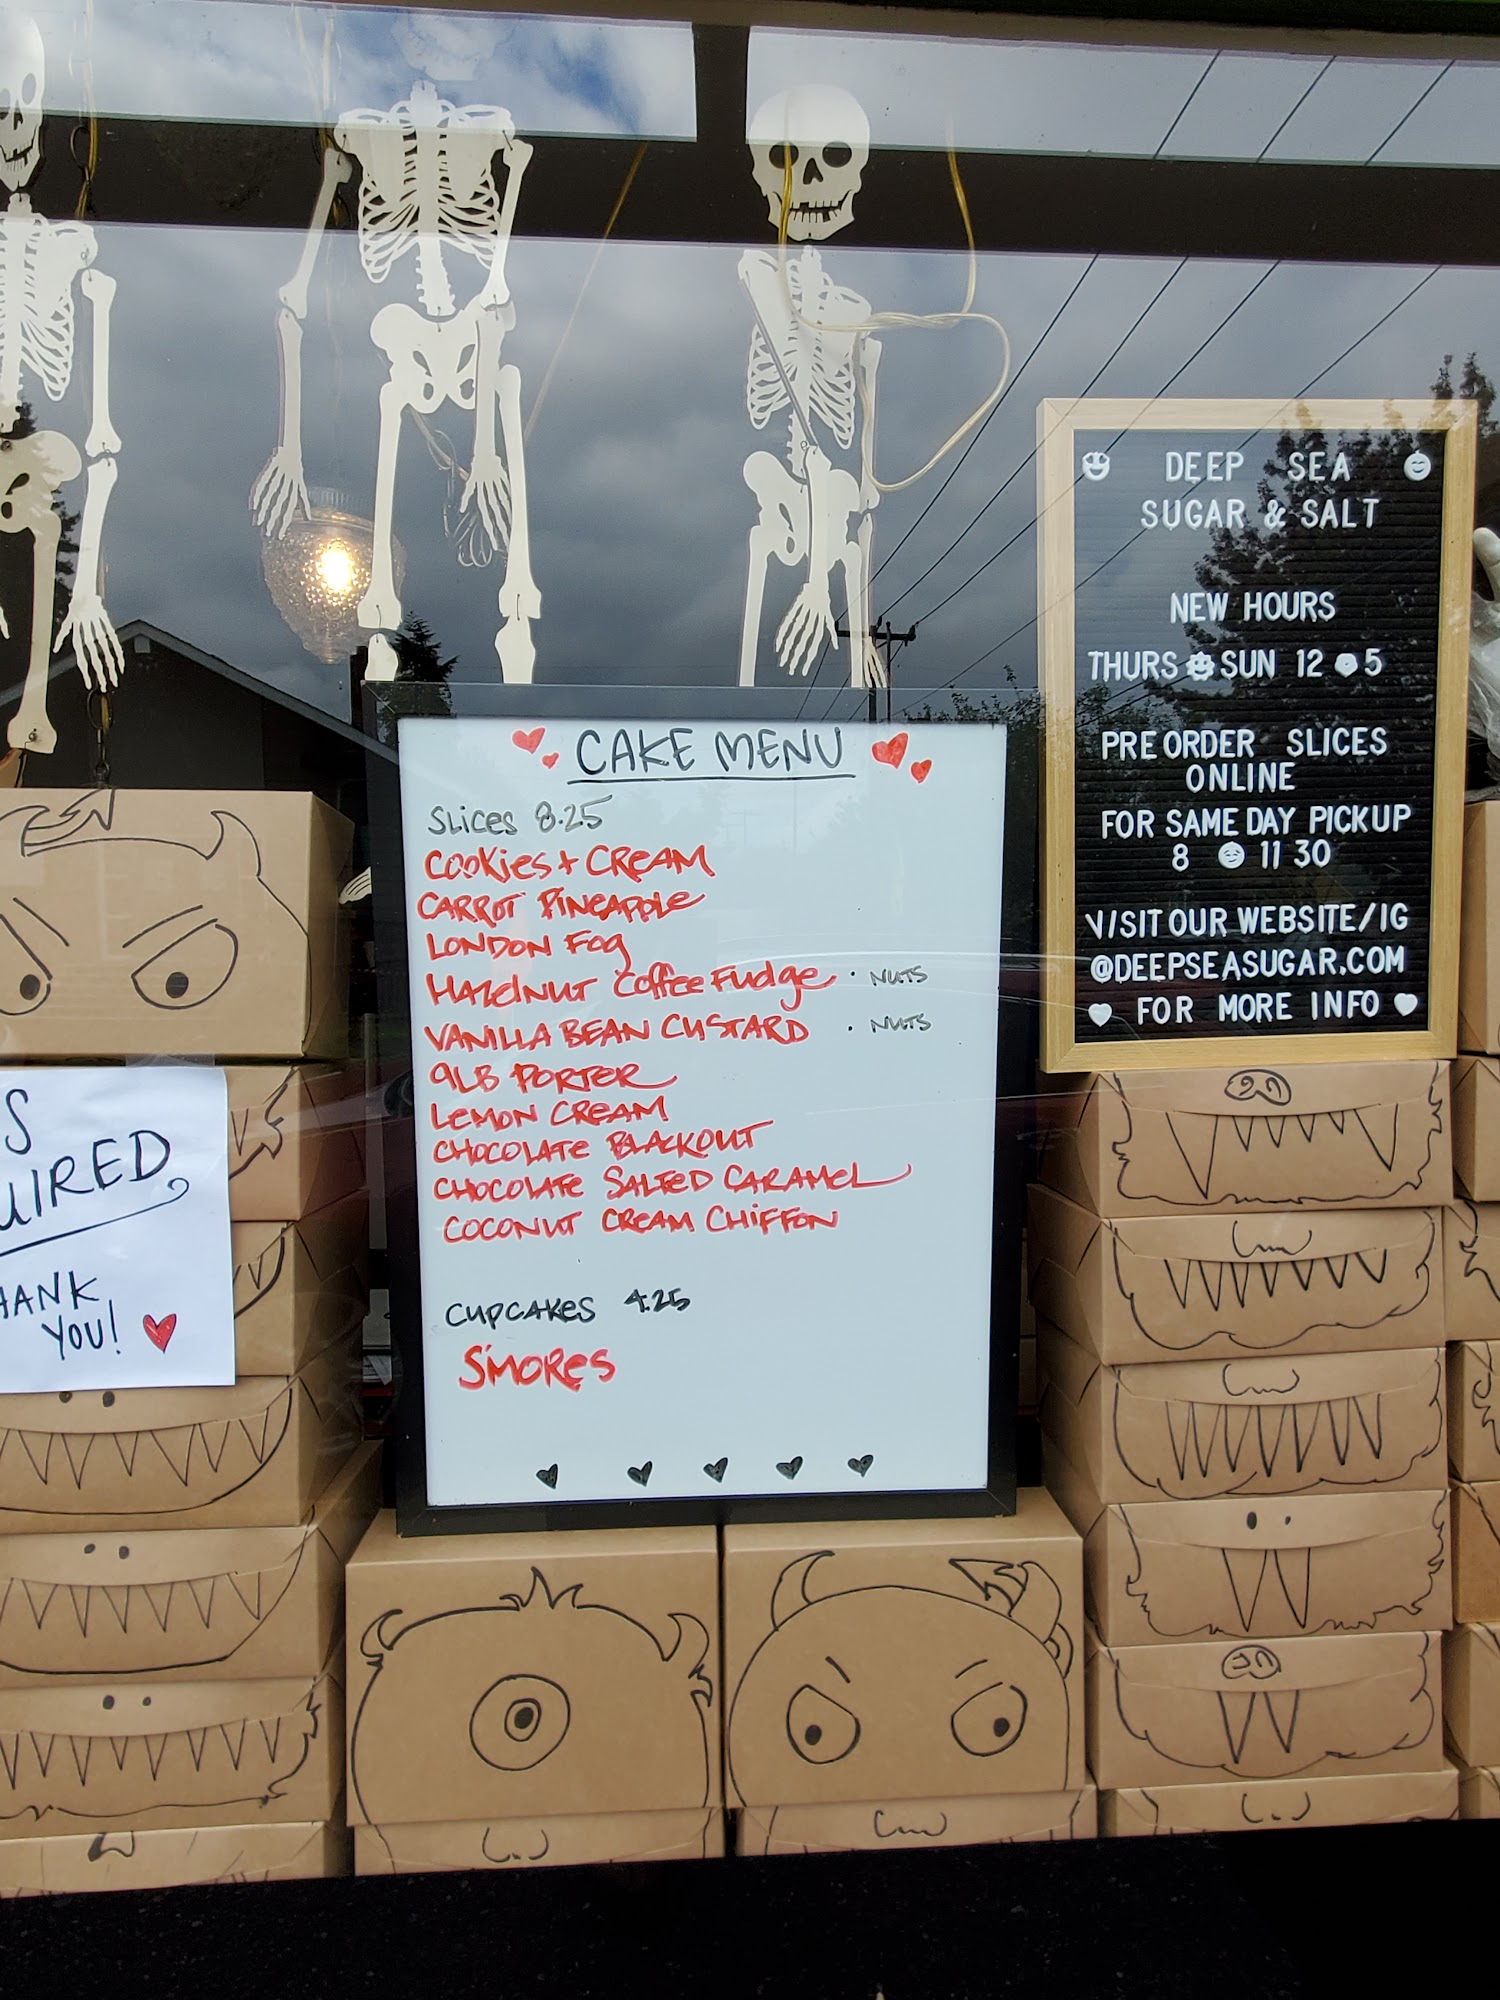 DEEP SEA
SUGAR & SALT
NEW HOURS
THURS SUN 12 5
PREORDER SLICES
ONLINE
FOR SAME DAY PICKUP
8 11 30
VISIT OUR WEBSITE/IG
@DEEPSEASUGAR.COM
FOR MORE INFO
CAKE MENU
SLices 8.25
COOKIES + CREAM
CARROT PINEAPPLE
LONDON FOG
HAZELNUT COFFEE FUDGE · NUTS
VANILLA BEAN CUSTARD · NUTS
9LB PORTER
LEMON CREAM
CHOCOLATE BLACKOUT
CHOCOLATE SALTED CARAMEL
COCONUT CREAM CHIFFON
CUPCAKES 4.25
S'MORES
YOU!